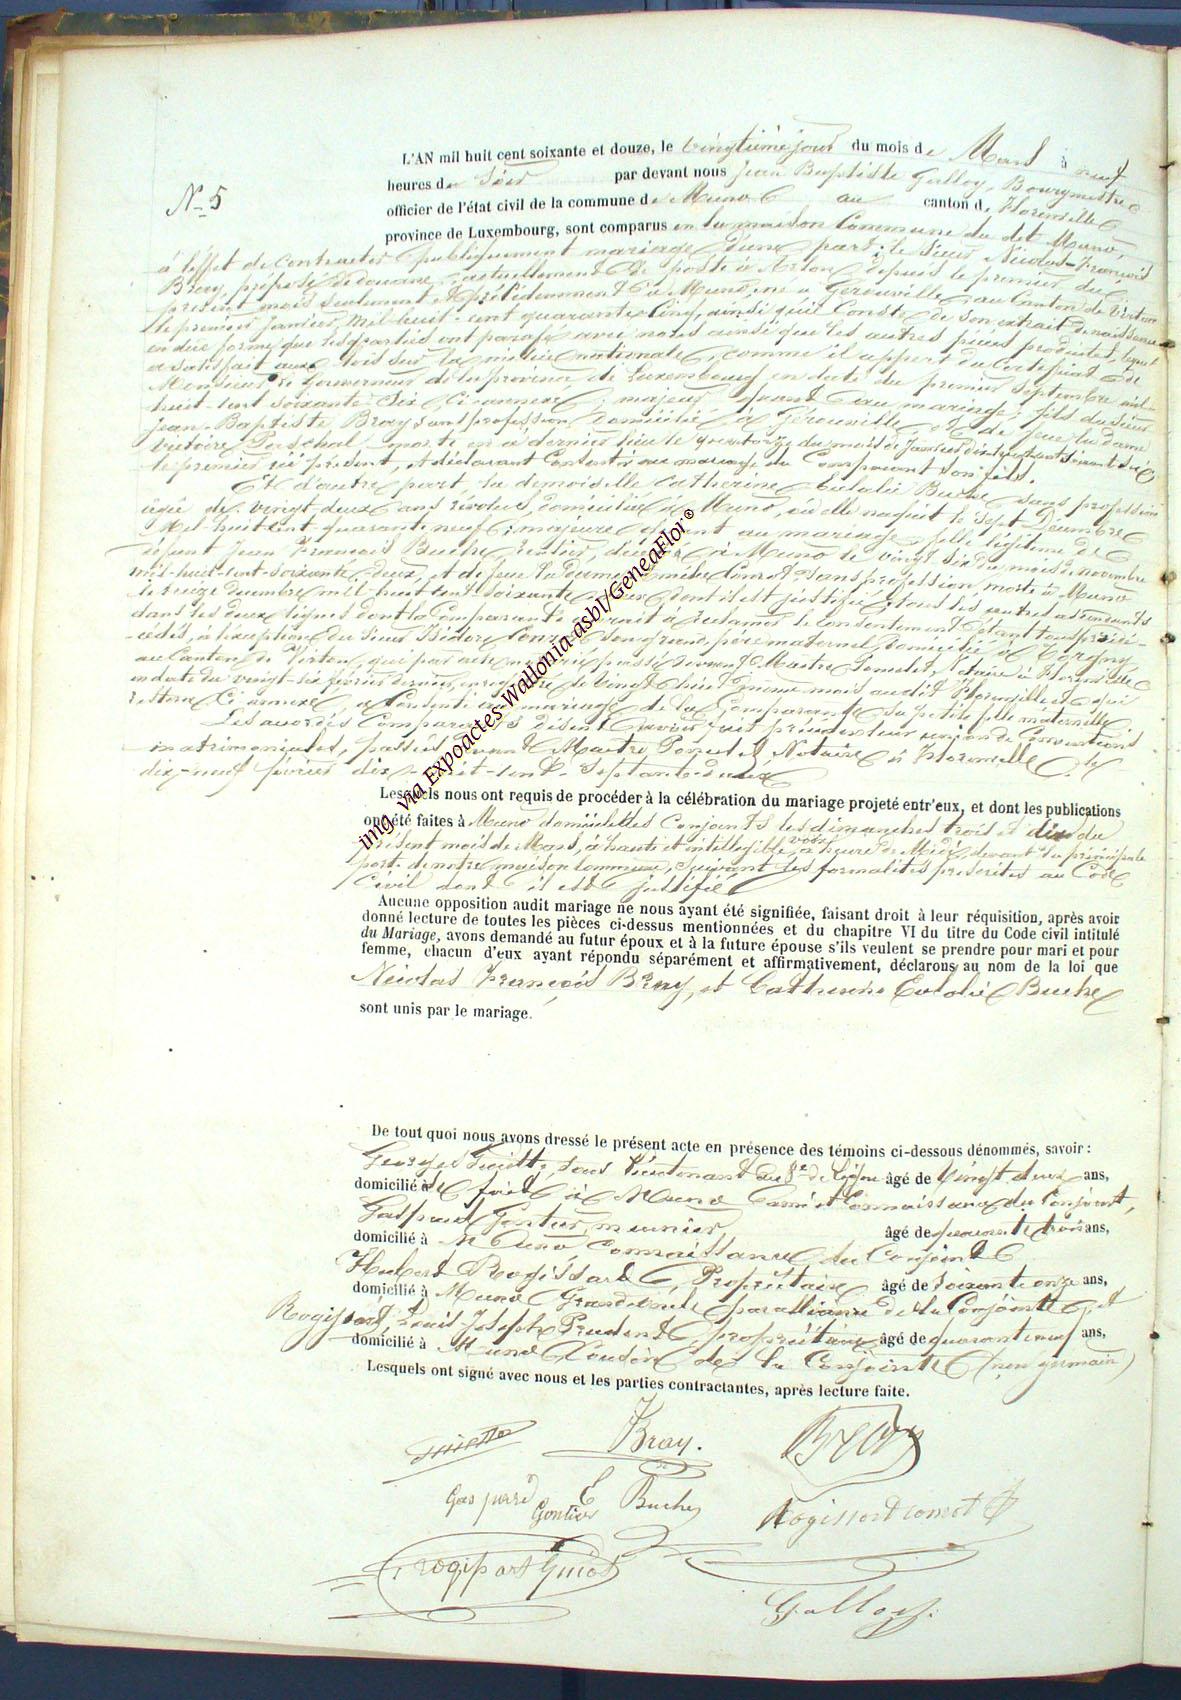 N° 5
L'AN mil huit cent soixante et douze, le vingtième jour du mois de Mars à neuf
heures du Soir par devant nous Jean Baptiste Galloy, Bourgmestre
officier de l'état civil de la commune de Muno au canton de Florenville
province de Luxembourg, sont comparus en la maison Commune du dit Muno,
à l'effet de contracter publiquement mariage, d'une part; le Sieur Nicolas-François
Bray, préposé de douane, actuellement de poste à Arlon, depuis le premier du
présent mois seulement & précédemment à Muno, né à Gérouville au Canton de Virton
le premier Janvier, Mil-huit-cent quarante Cinq, ainsi qu'il Conste de son extrait de naissance
en due forme que les parties ont parafé avec nous ainsi que les autres pièces produites, lequel
a satisfait aux lois sur la milice nationale, comme il appert du Certificat de
Monsieur le Gouverneur de la province de Luxembourg en date du premier Septembre mil-
huit-cent soixante-Six, Ci-annexé; majeur quant au mariage; fils du sieur
Jean-Baptiste Bray, sans profession, domicilié à Gérouville, & de feue la dame
Victoire Paschal, morte en ce dernier lieu le quatorze du mois de Janvier
le premier ici présent, et déclarant Consentir au mariage du Comparant son fils.
Et d'autre part, la demoiselle Catherine Eulalie Buche, sans profession
âgée de vingt deux ans révolus, domiciliée à Muno, où elle naquit le Sept Décembre
Mil-huit-cent quarante neuf; majeure quant au mariage, fille légitime de
défunt Jean François Buche, rentier, décédé à Muno le vingt six du mois de novembre
mil-huit-cent-soixante-deux, et de feue la dame Conrot, sans profession, morte à Muno
le treize décembre mil-huit-cent soixante dont il est justifié; tous les autres ascendants
dans les deux lignes dont la Comparante aurait à réclamer le Consentement étant tous prédé-
-cédés, à l'exception du Sieur Isidore Conrot son grand père maternel, domicilié à Torgny
au Canton de Virton, qui par acte passé devant Maître Notaire à Florenville
en date du vingt-six février dernier, enregistré le vingt huit même mois audit Florenville et qui
restera Ci-annexé, a Consenti au mariage de la Comparante sa petite fille maternelle.
Les susdits Comparants disent avoir fait précéder leur union de Conventions
matrimoniales, passées devant Maître Notaire à Florenville le
dix-neuf février dix-huit-cent-Septante-deux
Lesquels nous ont requis de procéder à la célébration du mariage projeté entr'eux, et dont les publications
ont été faites à Muno domicile des Conjoints les dimanches trois et dix du
présent mois de Mars, à haute et intelligible voix, à heure de Midi, devant la principale
porte de notre maison Commune, Suivant les formalités prescrites au Code
Civil dont il est justifié
Aucune opposition audit mariage ne nous ayant été signifiée, faisant droit à leur réquisition, après avoir
donné lecture de toutes les pièces ci-dessus mentionnées et du chapitre VI du titre du Code civil intitulé
du Mariage, avons demandé au futur époux et à la future épouse s'ils veulent se prendre pour mari et pour
femme, chacun d'eux ayant répondu séparément et affirmativement, déclarons au nom de la loi que
Nicolas François Bray, et Catherine Eulalie Buche
sont unis par le mariage.
De tout quoi nous avons dressé le présent acte en présence des témoins ci-dessous dénommés, savoir:
Georges sous lieutenant au 8e de Ligne âgé de Vingt deux ans,
domicilié de fait à Muno ami et Connaissance du Conjoint,
Gaspard Gontier, meunier âgé de quarante trois ans,
domicilié à Muno, Connaissance du Conjoint
Hubert Rogissart, Propriétaire âgé de Soixante onze ans,
domicilié à Muno Grand oncle par alliance de la Conjointe, et
Rogissart, Louis Joseph Prudent, propriétaire âgé de quarante neuf ans,
domicilié à Muno Cousin de la Conjointe (non germain)
Lesquels ont signé avec nous et les parties contractantes, après lecture faite.
Bray. Bray
Gaspard Gontier E Buche Rogissart conrot
rogissart Guiot
Galloy.
img. via Expoactes-Wallonia asbl/GeneaFlor®